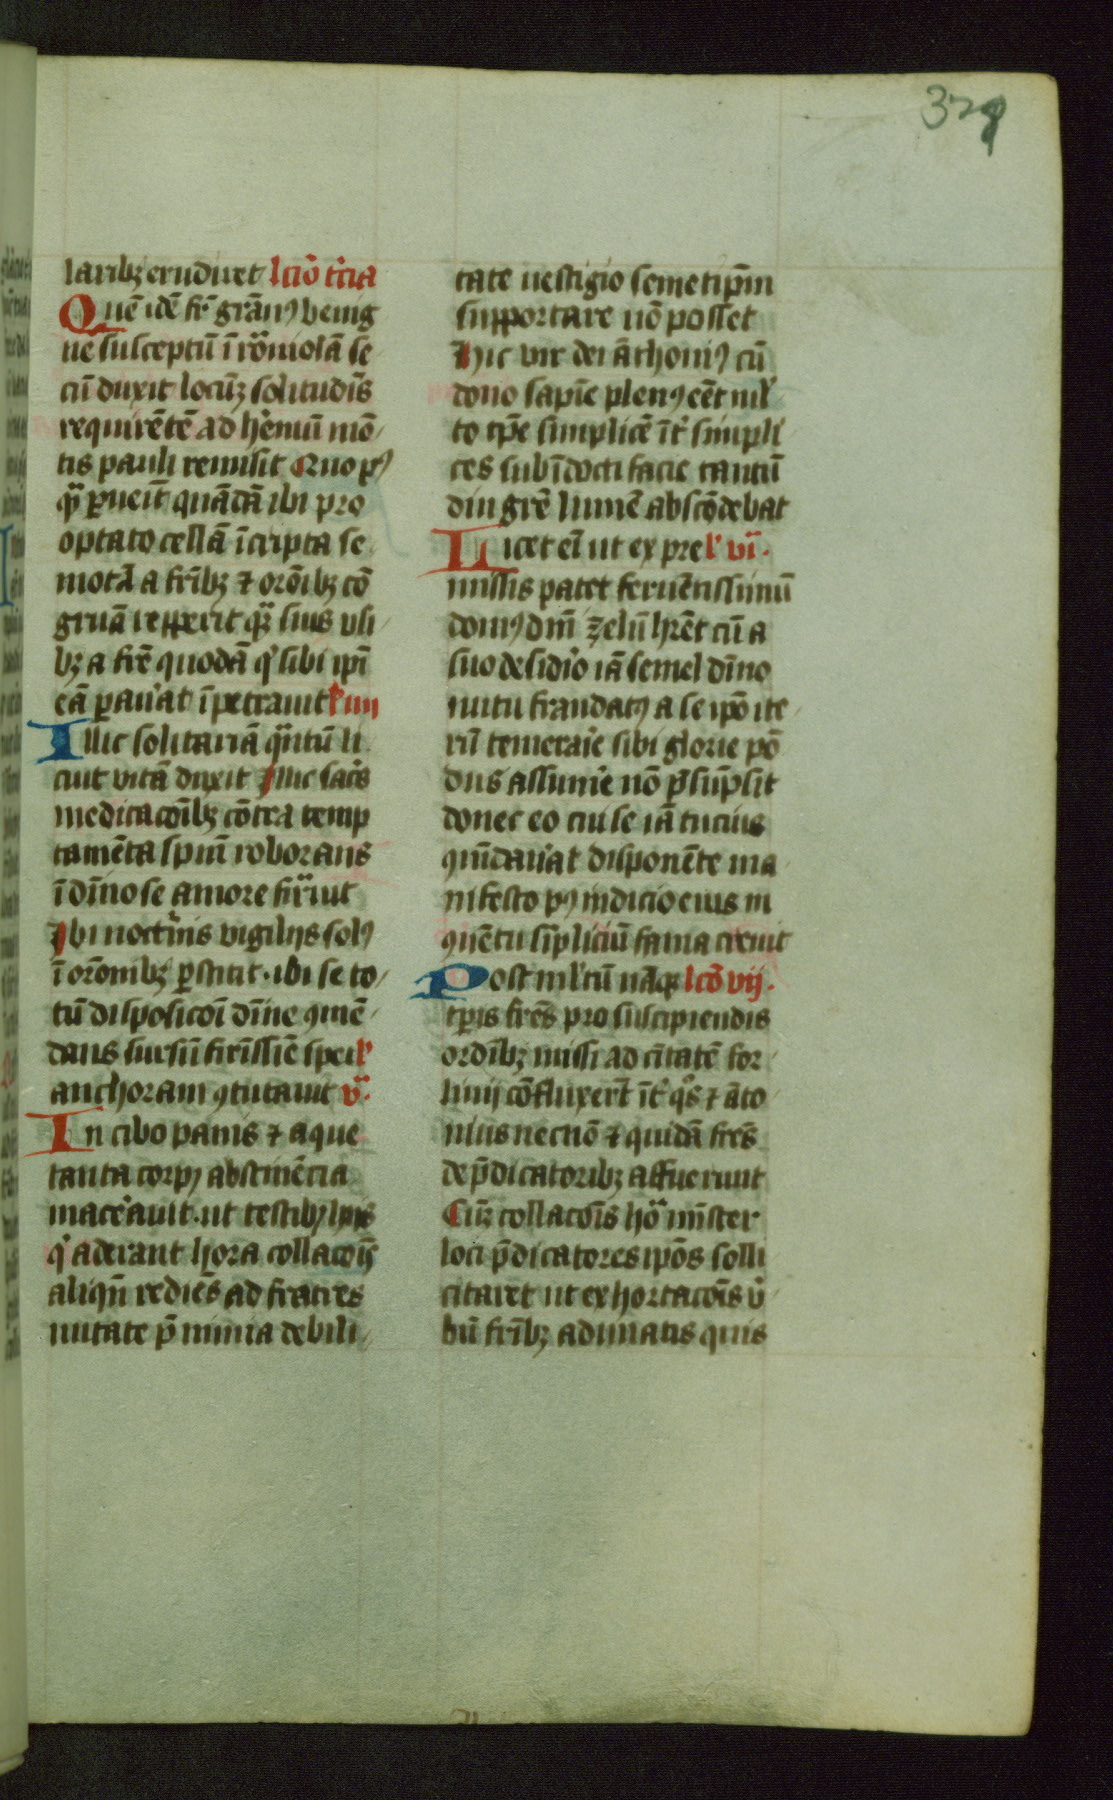 378
laribꝫ erudiret lc̄io t͛cia
Quē idē fr̄ grān⁹ benig
ne susceptū ī rōmolā se
cū duxit locūꝫ solitudīs
requirētē ad h̓emū mō
tis pauli remisit Quo p⁹
qͣ ꝑueīt quādā ibi pro
optato cellā ī cripta se
motā a frībꝫ ⁊ orōibꝫ cō
gruā repperit qͣꝫ suis vsi
bꝫ a frē quodā q͛ sibi ip̄i
eā ꝑau͛at īpetrauit l͛ iiij
Illic solitariā qͣntū li
cuit vitā duxit Illic sac͛s
meditacōibꝫ cōtra temp
tamēta spm̄ roborans
ī dīno se amore firͣuit
Ibi noct͛nis vigilijs sol⁹
ī orōnibꝫ ꝑstitit · ibi se to
tū disposicōi dīne ꝯmē
dans sursū firīssīe spei l͛
anchoram ꝯstitauit vͣ·
In cibo panis ⁊ aque
tanta corp⁹ abstinēcia
mac͛auit · ut testibꝫ hijs
q͛ aderant hora collacōīs
aliqn̄ rediēs ad fratres
nutate p̄ nimia debili
tate uestigio semetip̄m
supportare nō posset
Hic vir dei āthoni⁹ cū
dono sapīe plen⁹ eēt ml͛
to tp̄e simplicē īt͛ simpli
ces sub īdocti facie tantū
diu grē lumē abscōdebat
Licet eī ut ex pre l͛ vi·
missis patet feruētissimū
dom⁹ dn̄i zelū hr̄et cū a
suo desid͛io iā semel dīno
nutu fraudat⁹ a se ip̄o ite
rū temera͛ie sibi glorie pō
dus assum͛e nō p̄sūpsit
donec eo cui se iā tucius
ꝯmēdau͛at disponēte ma
nifesto p⁹ indicio eius in
ꝯuētu sīpliciū fama creuit
Post ml͛tū nāqꝫ lcō vij·
tꝑis frēs pro suscipiendis
ordībꝫ missi ad cītatē for
liuij cōfluxerūt īt͛ qͦs ⁊ āto
nius necnō ⁊ quidā frēs
de p̄dicatoribꝫ affuerunt
Cūꝫ collacōīs hōͣ mīster
loci p̄dicatores ip̄os solli
citaret ut exhortacōīs v͛
bū frībꝫ adunatis quis